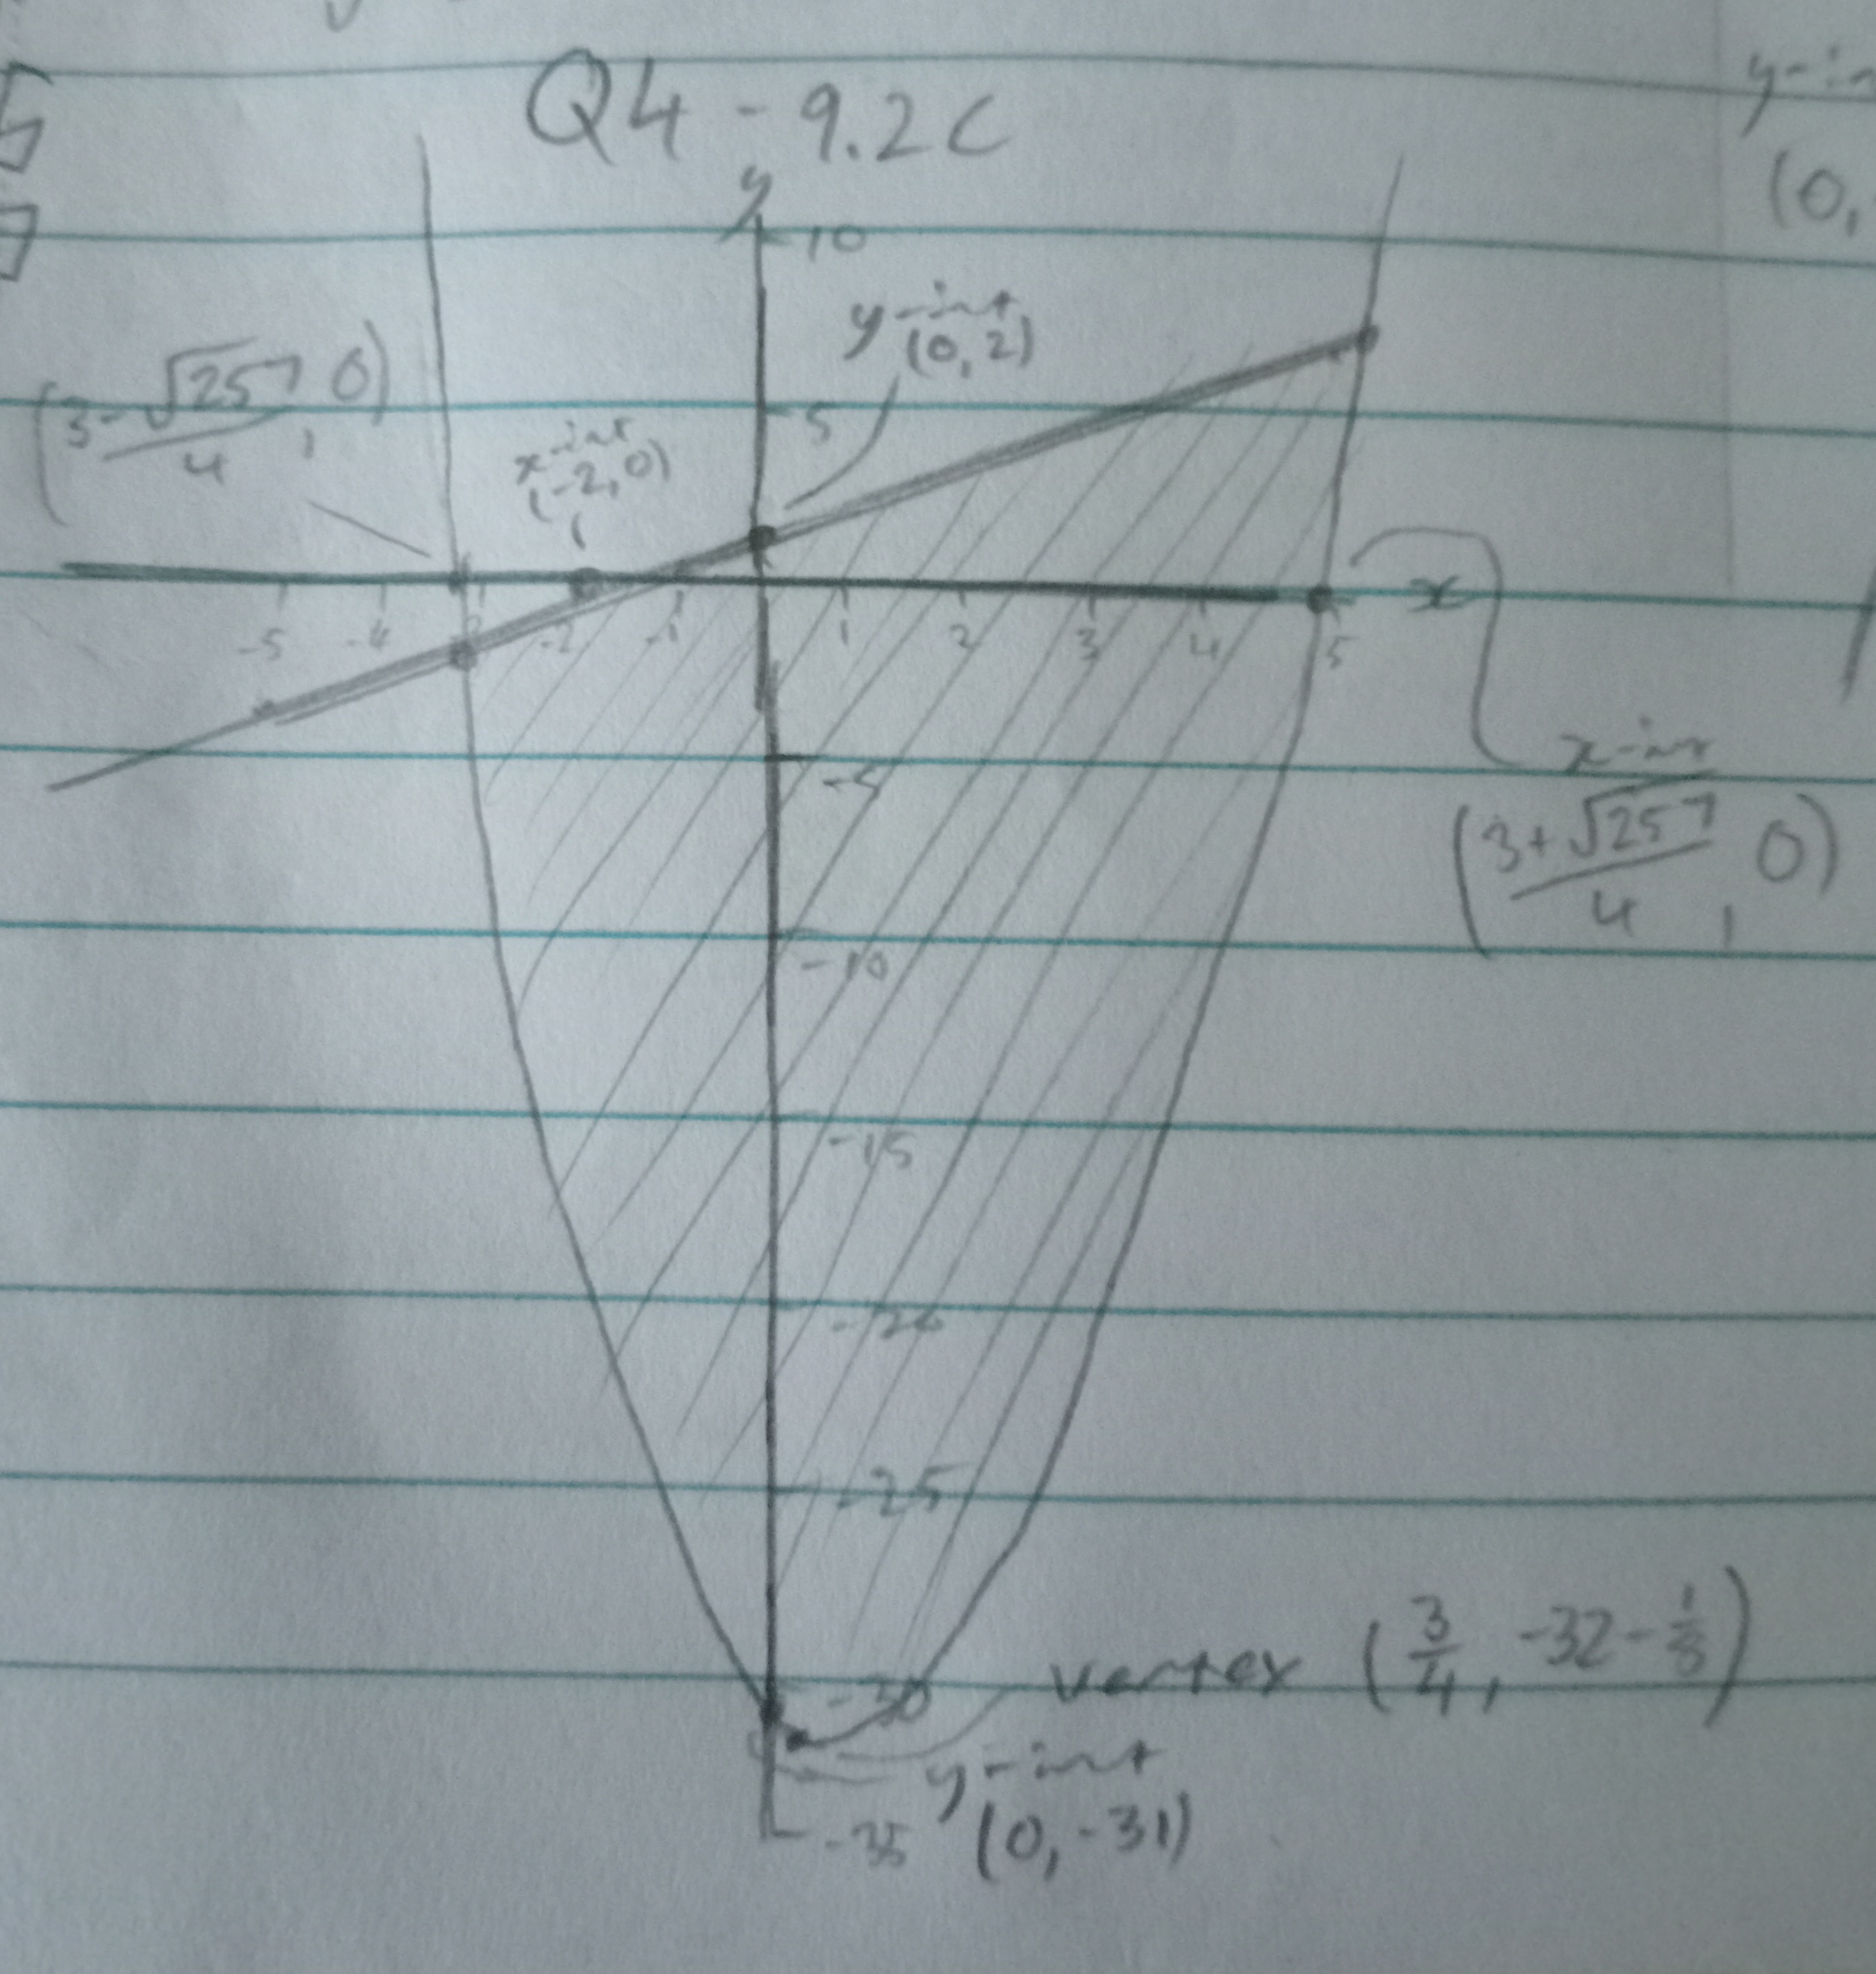 Q4 - 9.2C
y-in
(0,
y
10
y-int
(0, 2)
(3-√257/4, 0)
5
x-int
(-2, 0)
-5 -4 -3 -2 -1 1 2 3 4 5 x
-5
x-int
(3+√257/4, 0)
-10
-15
-20
-25
-30
vertex (3/4, -32-1/8)
y-int
(0, -31)
-35